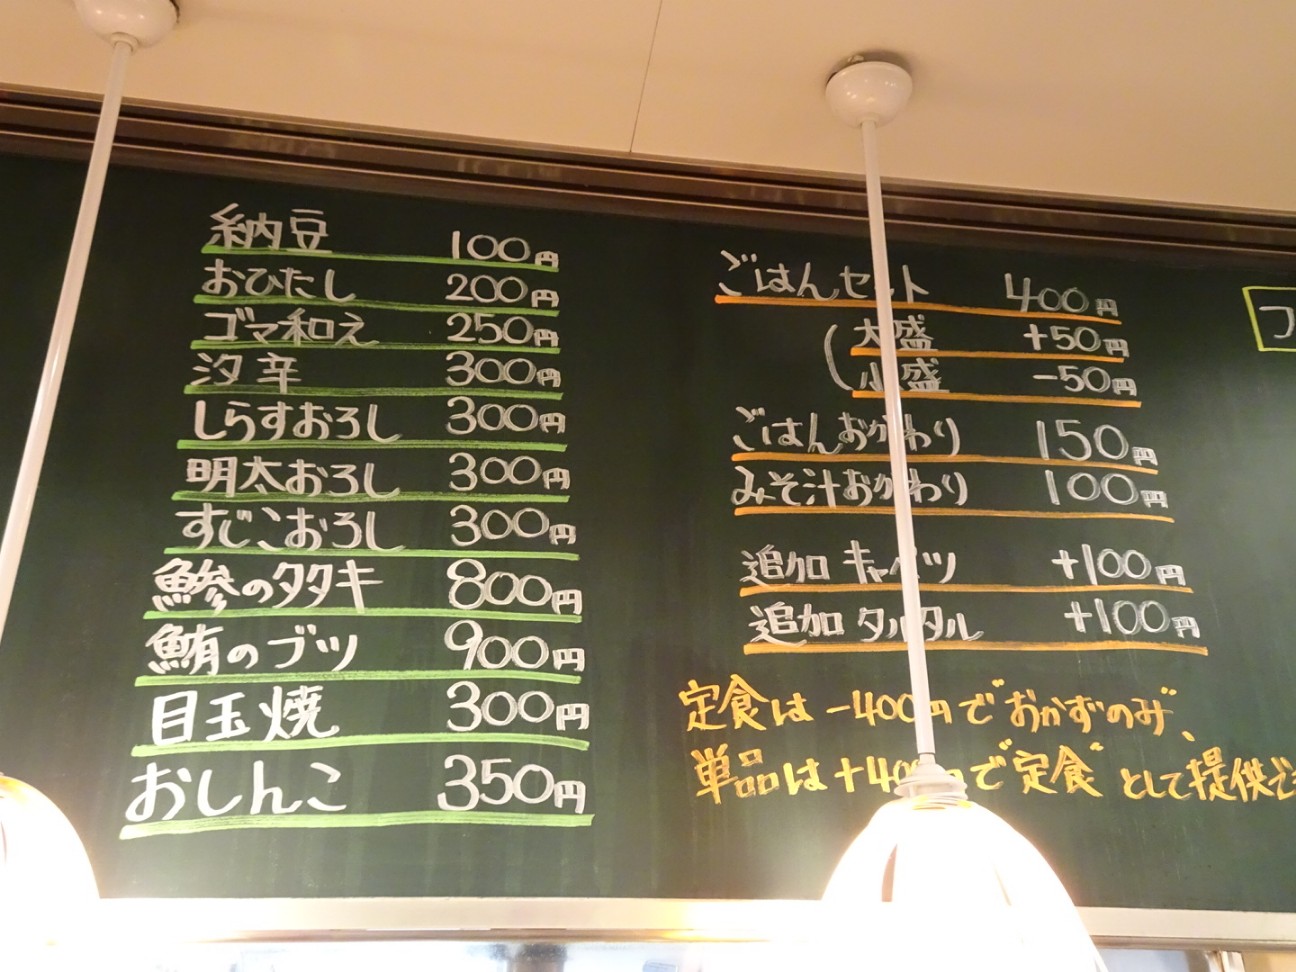 納豆 100円
おひたし 200円
ゴマ和え 250円
汐辛 300円
しらすおろし 300円
明太おろし 300円
すじこおろし 300円
鯵のタタキ 800円
鮪のブツ 900円
目玉焼 300円
おしんこ 350円
ごはんセット 400円
(大盛 +50円
小盛 -50円
ごはんおかわり 150円
みそ汁おかわり 100円
追加 キャベツ +100円
追加 タルタル +100円
定食は -400円で"おかずのみ"、
単品は +400円で"定食"として提供でき
フ